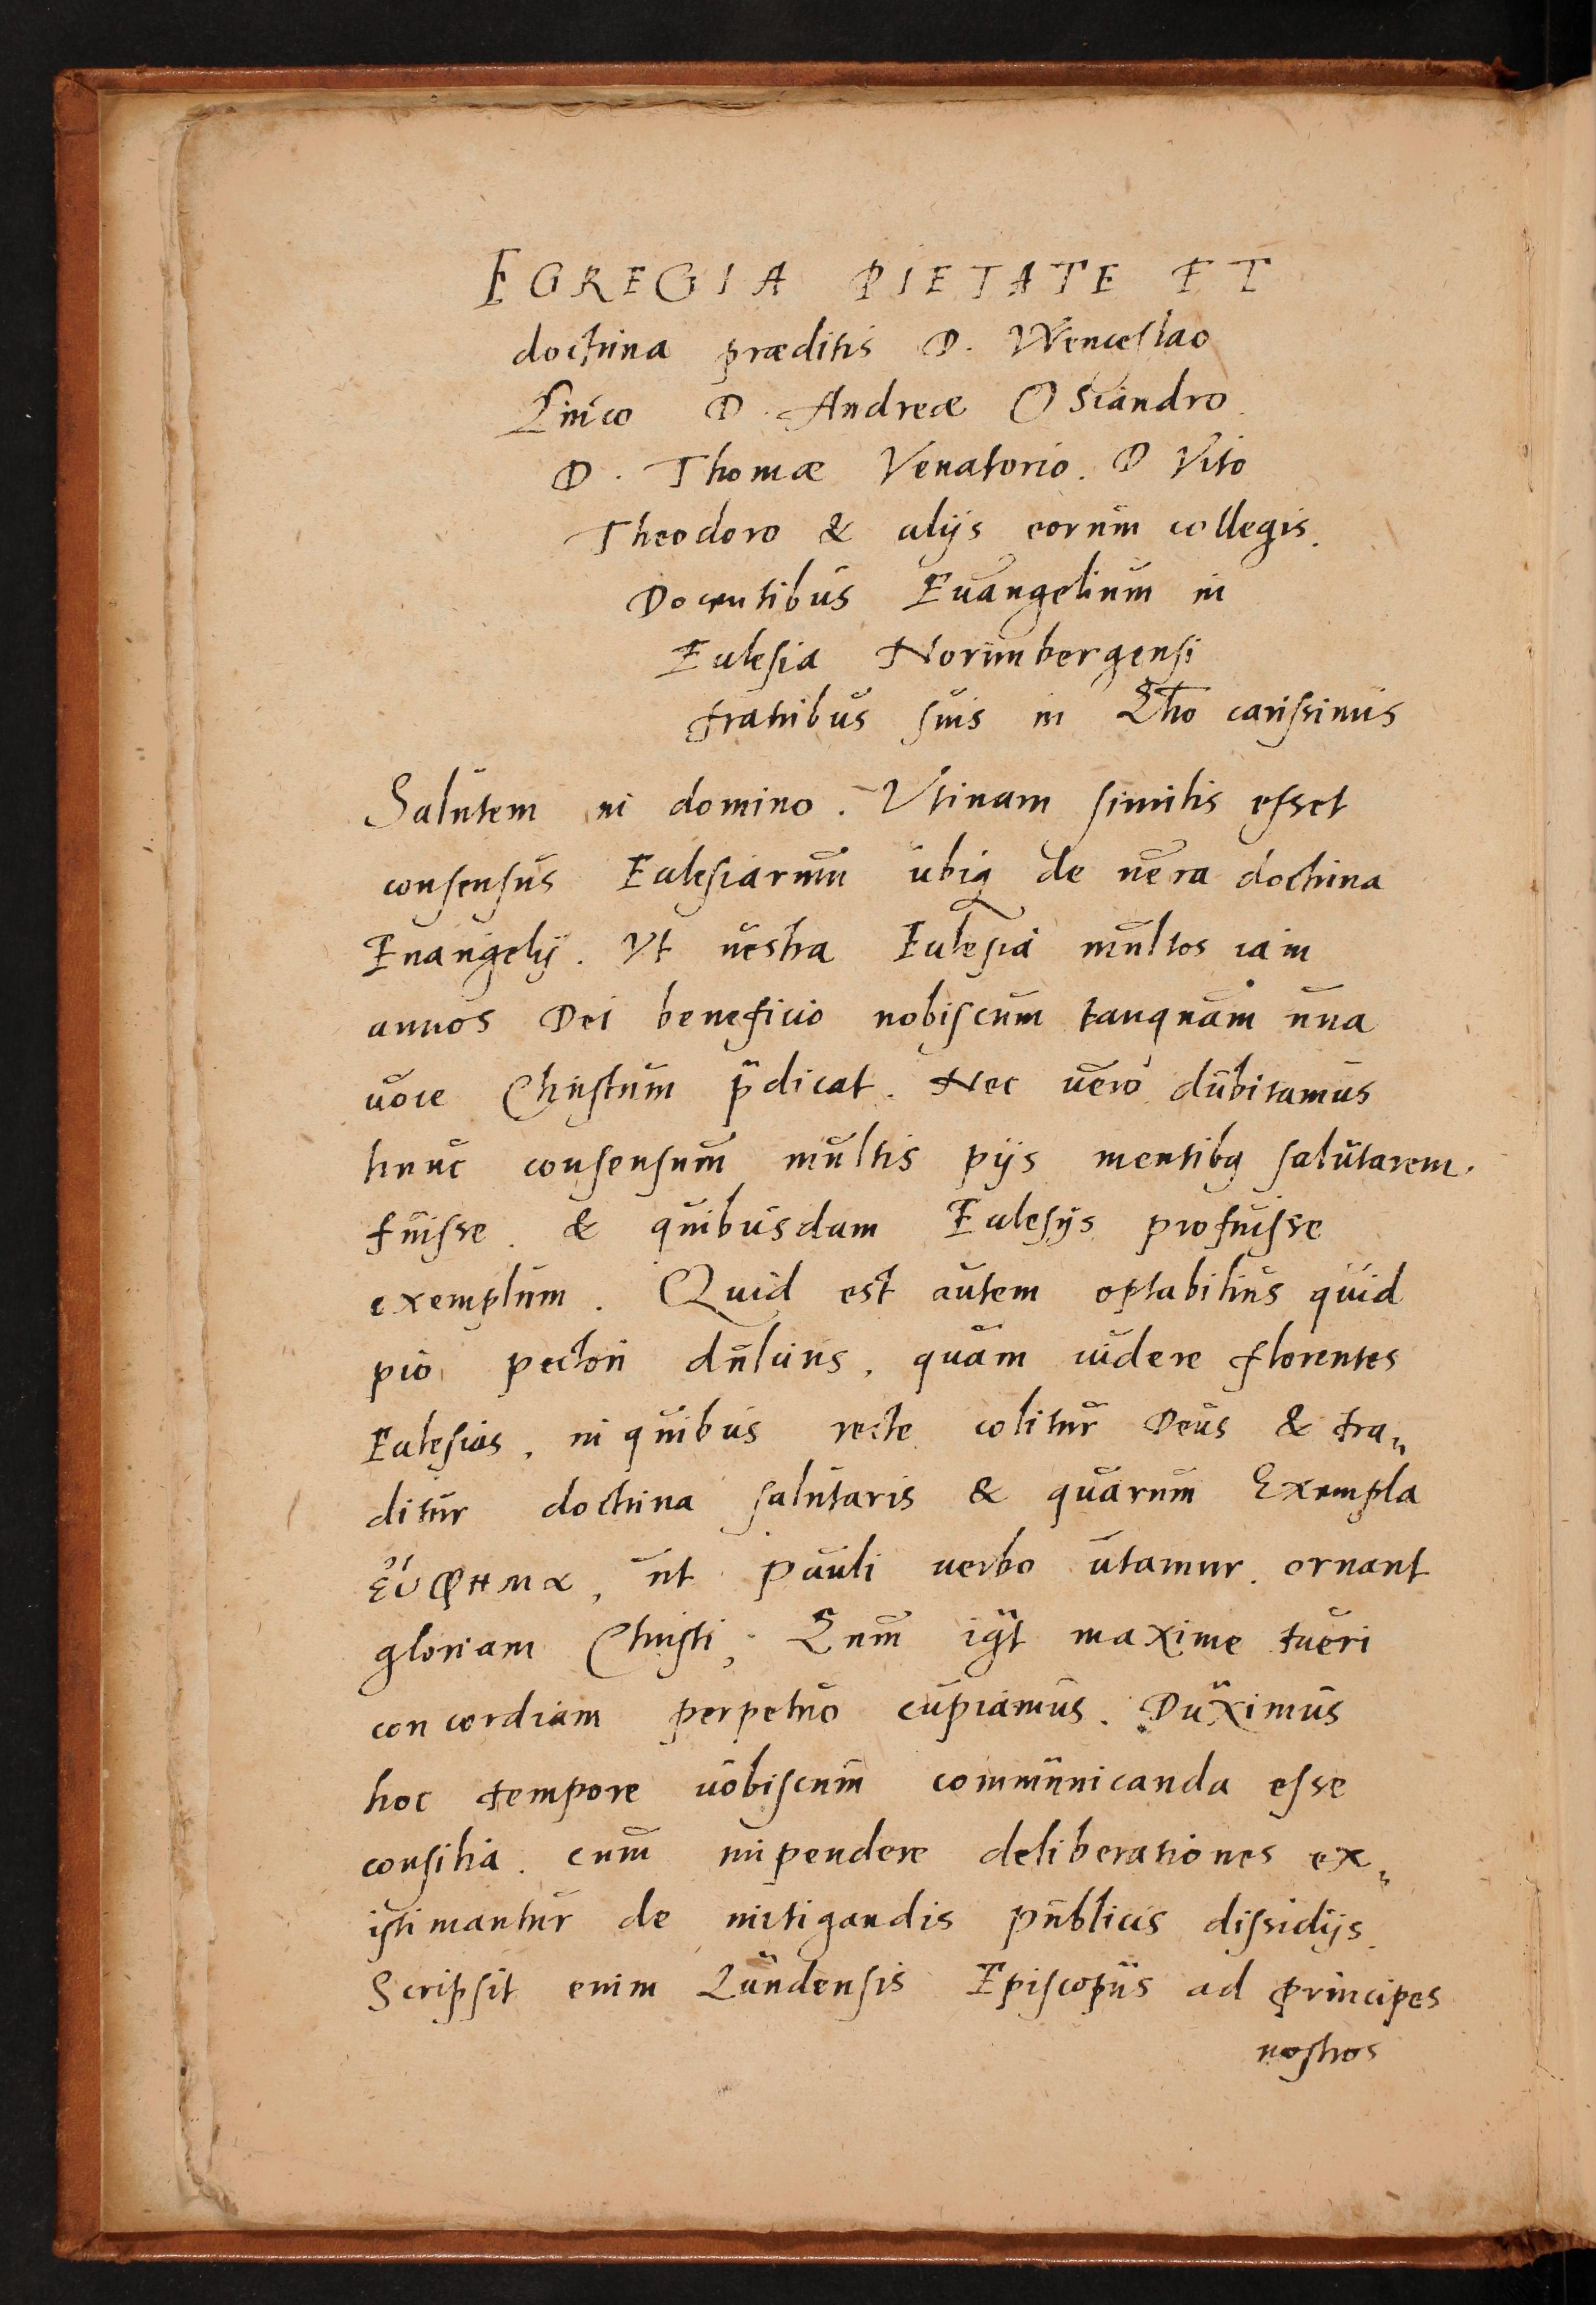 EGREGIA PIETATE ET
doctrina præditis D. Wenceslao
Linco D. Andreæ Osiandro.
D. Thomæ Venatorio. D Vito
Theodoro & alijs eorum collegis.
Docentibus Euangelium in
Eclesia Norimbergensi
fratribus suis in Chro carissimis
Salutem in domino. Vtinam similis esset
consensus Eclesiarum ubiq de uera doctrina
Euangelij. Vt uestra Eclesia multos iam
annos Dei beneficio nobiscum tanquam una
uoce Christum p̄dicat. Nec uero dubitamus
hunc consensum multis pijs mentibq salutarem.
fuisse. & quibusdam Eclesijs profuisse
exemplum. Quid est autem optabilius quid
pio pectori dulcius, quam uidere florentes
Eclesias, in quibus recte colitur Deus & tra„
ditur doctrina salutaris & quarum Exempla
εὔφημα, ut Pauli uerbo utamur. ornant
gloriam Christi, Cum igt maxime tueri
concordiam perpetuo cupiamus. Duximus
hoc tempore uobiscum communicanda esse
consilia. cum impendere deliberationes ex„
istimantur de mitigandis publicis dissidijs.
Scripsit enim Lundensis Episcopus ad principes
nostros